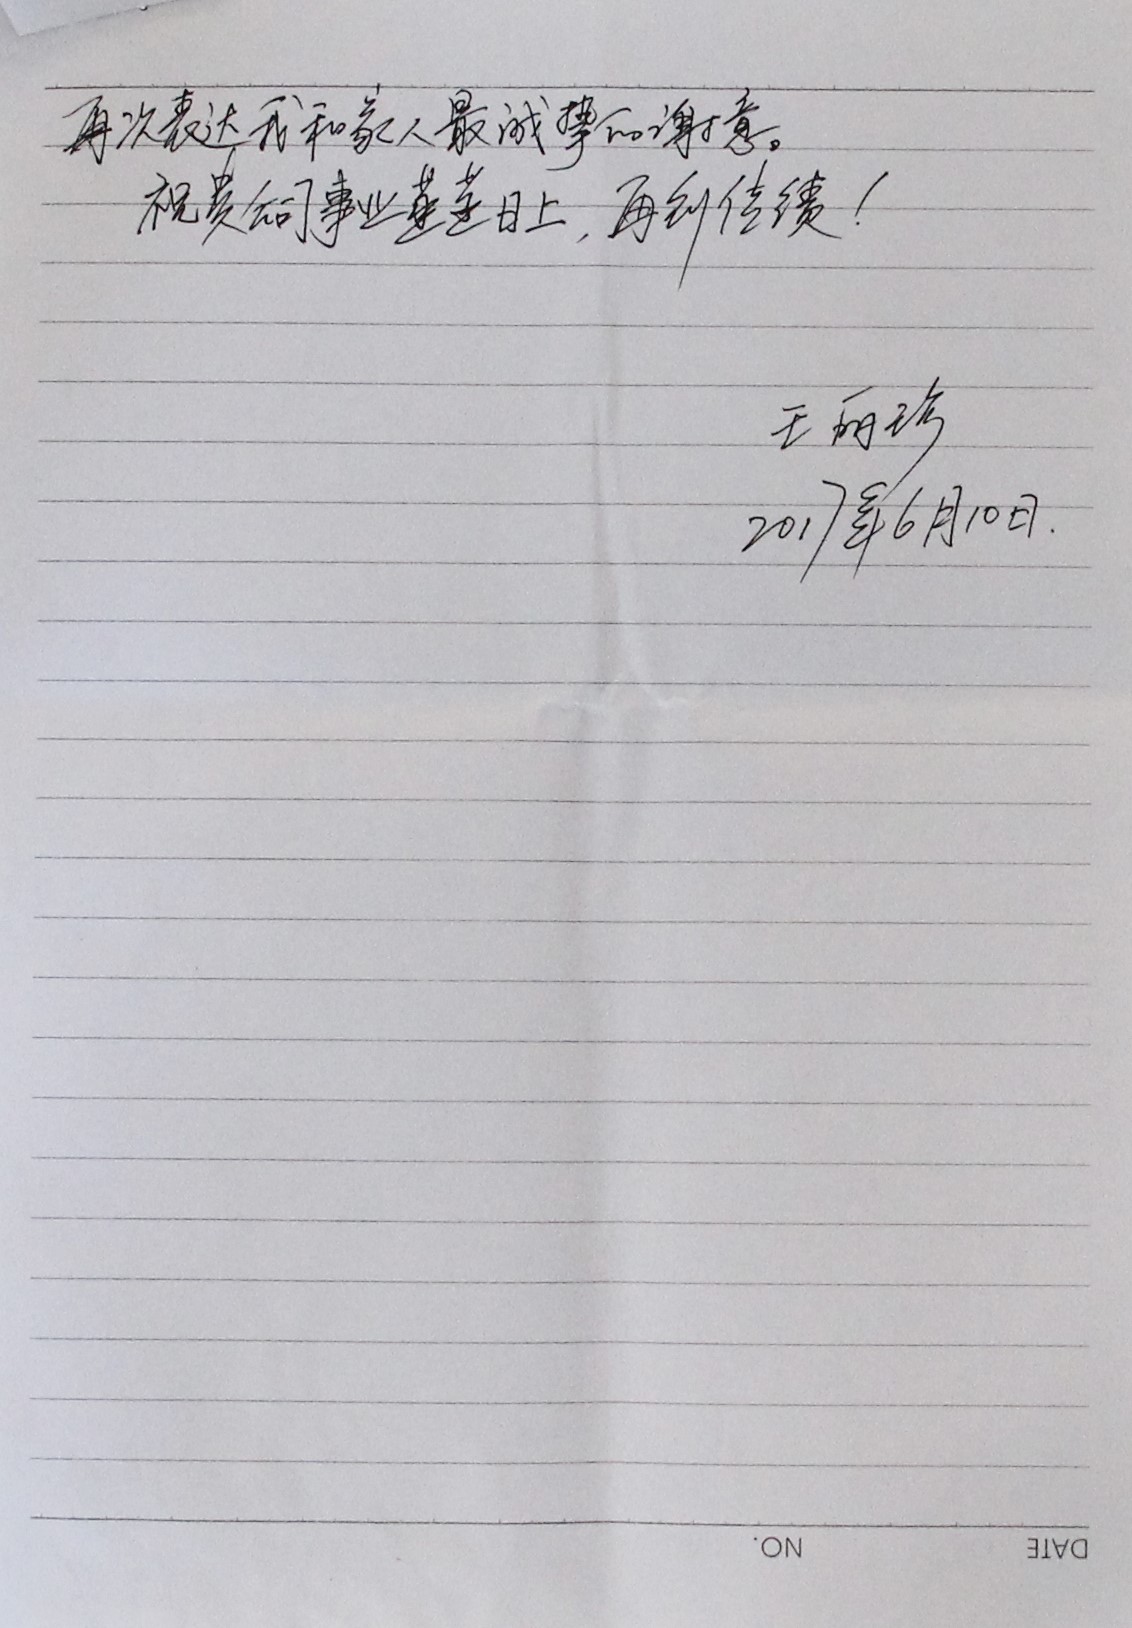 再次表达我和家人最诚挚的谢意。
祝贵公司事业蒸蒸日上，再创佳绩！
王丽珍
2017年6月10日.
NO.
DATE